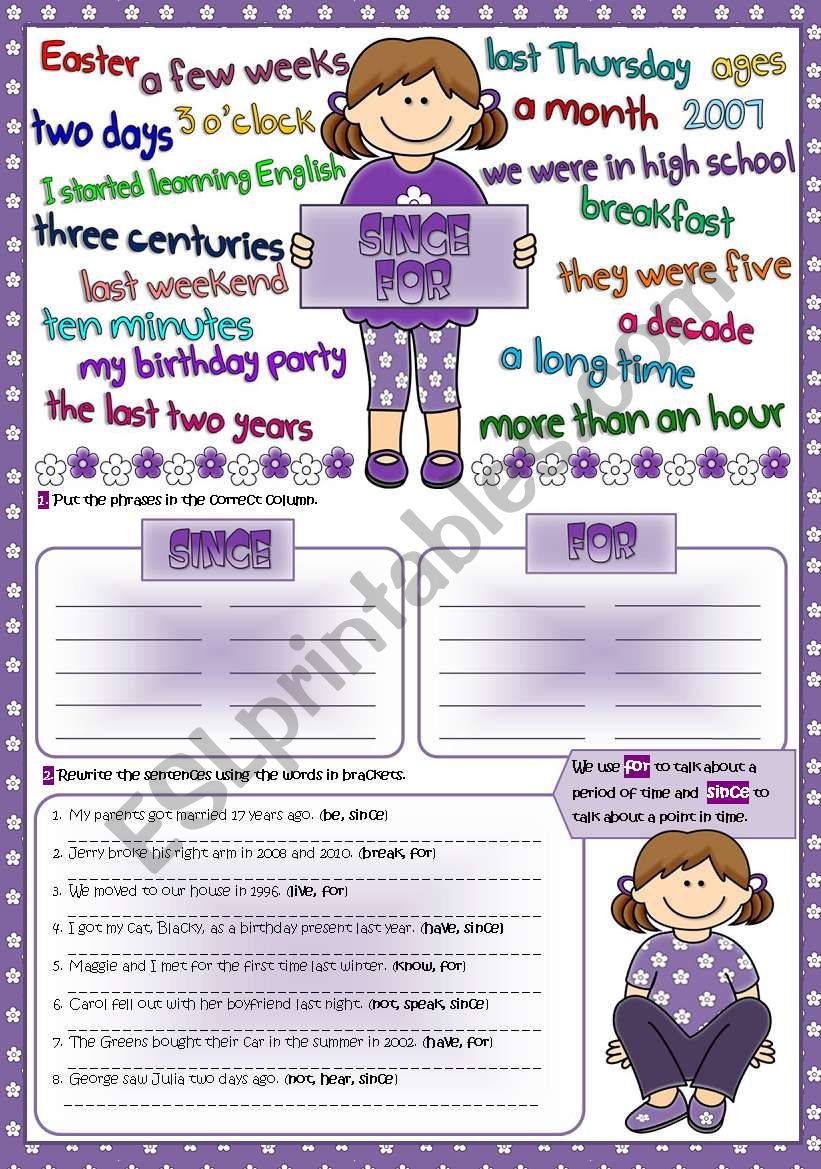 Easter
a few weeks
last Thursday
ages
two days
3 o'clock
a month
2007
I started learning English
we were in high school
three centuries
breakfast
last weekend
they were five
ten minutes
a decade
my birthday party
a long time
the last two years
more than an hour
SINCE
FOR
1. Put the phrases in the correct column.
SINCE
FOR
2. Rewrite the sentences using the words in brackets.
We use for to talk about a
period of time and since to
talk about a point in time.
1. My parents got married 17 years ago. (be, since)
2. Jerry broke his right arm in 2008 and 2010. (break, for)
3. We moved to our house in 1996. (live, for)
4. I got my cat, Blacky, as a birthday present last year. (have, since)
5. Maggie and I met for the first time last winter. (know, for)
6. Carol fell out with her boyfriend last night. (not, speak, since)
7. The Greens bought their car in the summer in 2002. (have, for)
8. George saw Julia two days ago. (not, hear, since)
ESLprintables.com